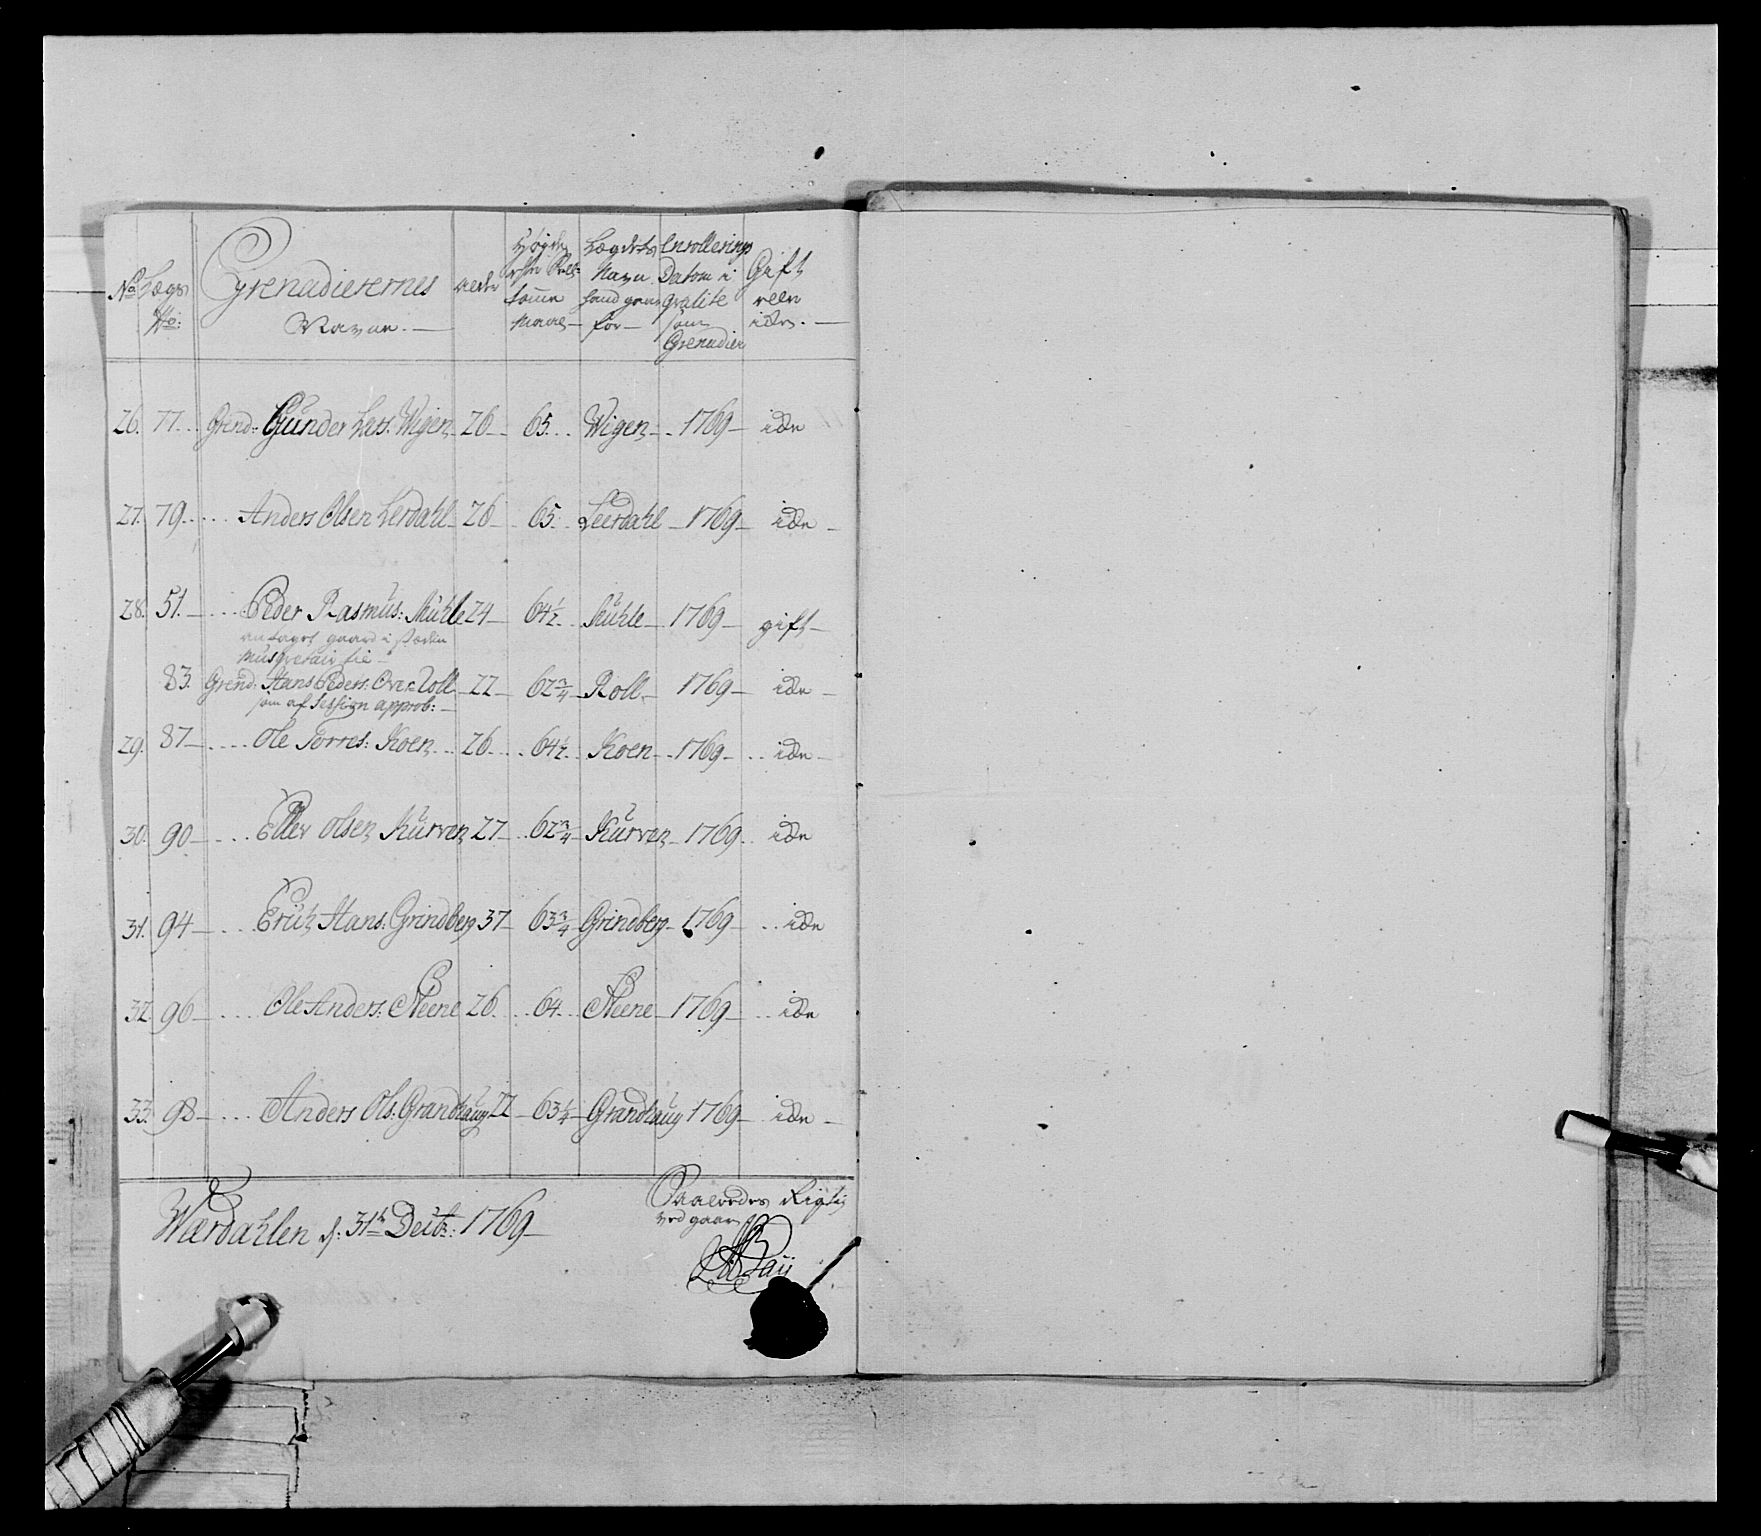 No Lægs No: Grenadierernes Navne. Alder Høyde Tomme Maal Lægdets Navn hand gaar for Enrollerings Datom i Qvalite som Grenadier Gift eller icke.
26. 77. Grend: Gunder Lars: Wigen 26 65. Wigen 1769 icke
27. 79. Anders Olsen Lerdahl 26 65. Leerdahl 1769 icke
28. 51. Peder Rasmus: Mühle 24 64½ Mühle 1769 gift
antaget gaard i
Musqveteir
83. Grend: Hans Peders: Over Roll 22 62¾ Roll 1769 icke
som af Session approb:
29. 87 Ole Torres: Koen 26 64½ Koen 1769 icke
30. 90 Eller Olsen Kurven 27 62¾ Kurven 1769 icke
31. 94 Erich Hans: Grindberg 37 63¾ Grindberg 1769 icke
32. 96 Ole Anders: Steene 26 64 Steene 1769 icke
33. 98 Anders Ols: Grandhaug 22 63¼ Grandhaug 1769 icke
Wærdahlen d: 31th Decbr: 1769
Saaledes Rigtig
ved gaar